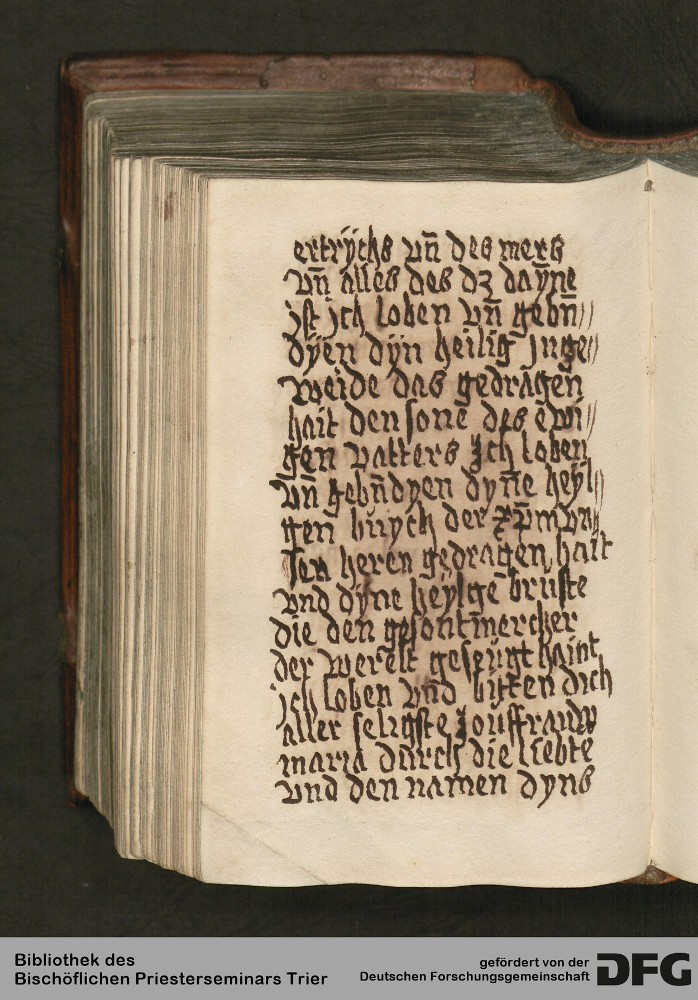 ertrÿchs vn̄ des mers
vn̄ alles des dʒ daÿne
ist jch loben vn̄ gebn̄//
dÿen dÿn heiliḡ jnge//
weide das gedragen̄
hait den sone des ewi//
gen vatters Jch loben
vn̄ gebn̄dyen dyn̄e heyl//
gen buych der xp̄m vn//
sen heren gedragen hait
vnd dÿne heÿlge bruste
die den gesontm̄ercher
der werelt geseugt haint
jch loben vnd bitten dich
aller seligste Jouffrauw
maria durch die liebte
vnd den namen dyns
Bibliothek des
Bischöflichen Priesterseminars Trier
gefördert von der
Deutschen Forschungsgemeinschaft
DFG